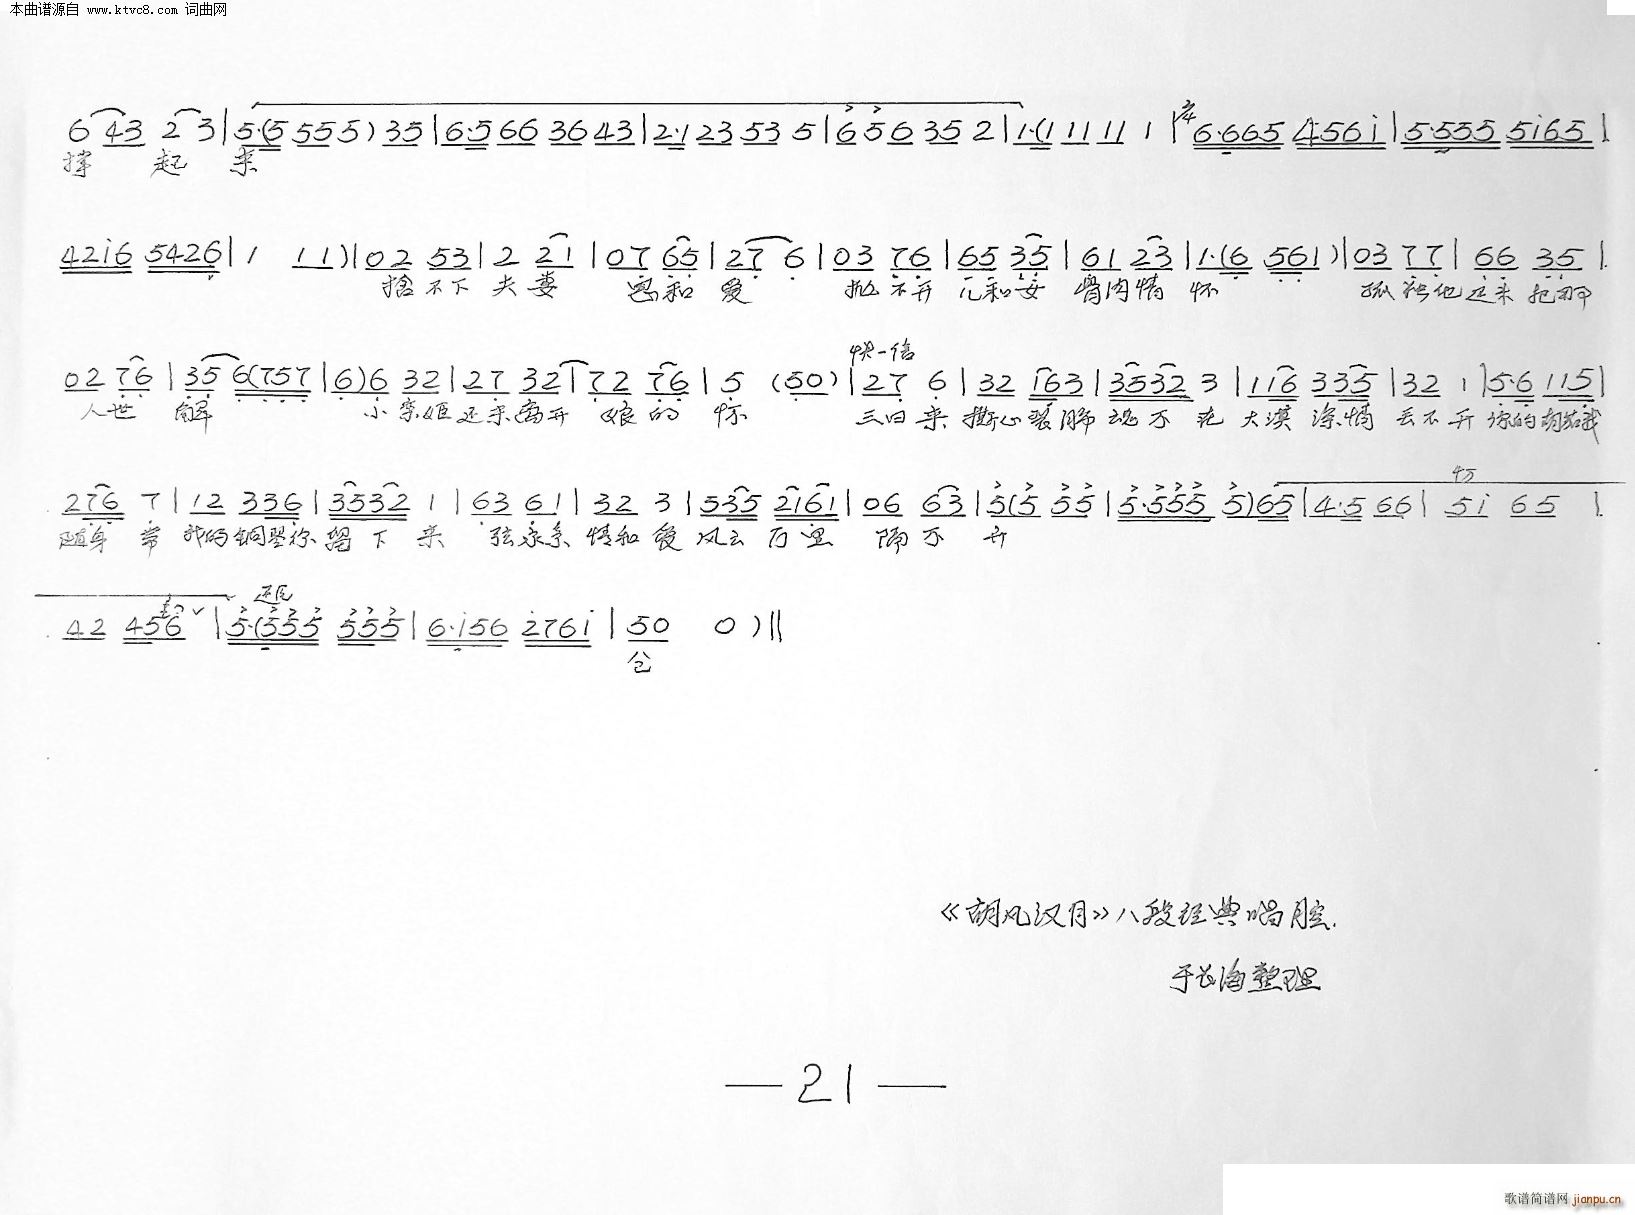 本曲谱源自 www.ktvc8.com 词曲网
6 43 2 3 | 5·(5 555) 35 | 6·5 66 36 43 | 2·1 23 53 5 | 656 35 2 | 1·(1 11 11 1 | 2/4 6·665 456i | 5·555 5i65 |
撑 起 来
42i6 5426 | 1 11) | 02 53 | 2 21 | 07 65 | 27 6 | 03 76 | 65 35 | 61 23 | 1·(6 561) | 03 77 | 66 35 |
捨不下 夫妻 恩和 爱 抛不开 儿和女 骨肉情 怀 孤独他还未把那
02 76 | 35 6(757 | 6)6 32 | 27 32 | 72 76 | 5 (50) | 快一倍 27 6 | 32 163 | 3532 3 | 116 335 | 32 1 | 5·6 115 |
人世 解 小 还未离开 娘的 怀 三日来 撕心裂肺 魂不 大漠 深情 丢不开 你的胡茄我
276 7 | 12 336 | 3532 1 | 63 61 | 32 3 | 535 2161 | 06 63 | 5(5 55 | 5·555 5)65 | 4·5 66 | 5i 65 |
随身 带 我的铜 你留下来 弦永系 情和爱 风云万里 隔不开
42 456 | 5·(555 555 | 6·i56 276i | 50 0 ) ‖
仓
《胡风汉月》八段经典唱腔.
于长海整理
—21—
歌谱简谱网 jianpu.cn